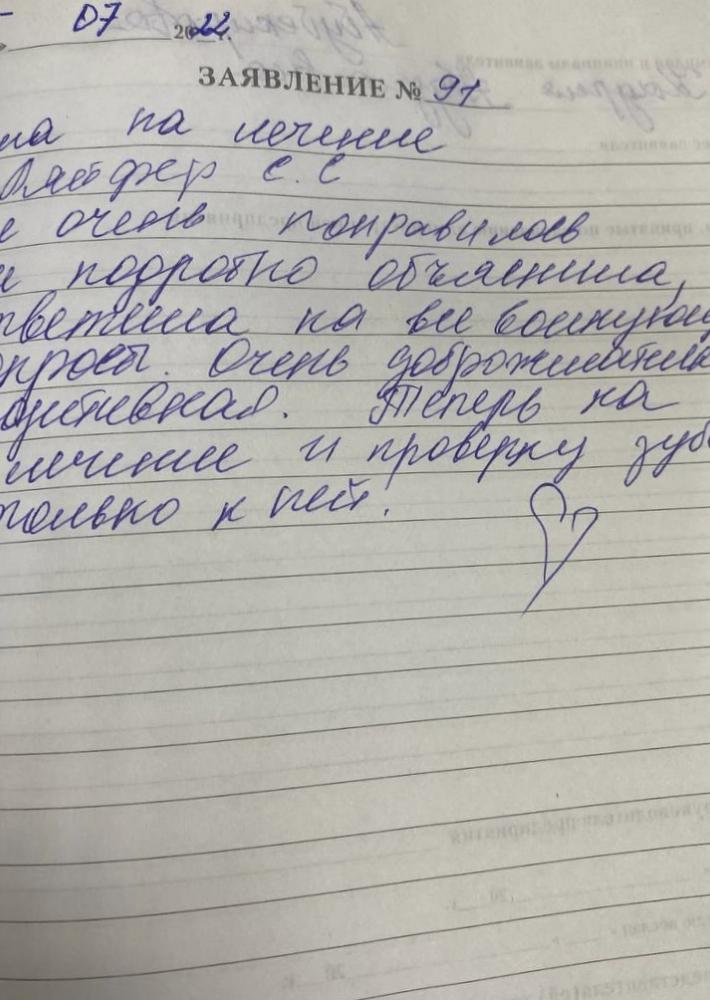 07 2022 г.
ЗАЯВЛЕНИЕ № 91
ла на лечение
Ляйфер С.С
е очень понравилось
е подробно объяснила,
тветила на все волнующ
опросы. Очень доброжелательн
озитивная. Теперь на
лечение и проверку зуб
только к ней!